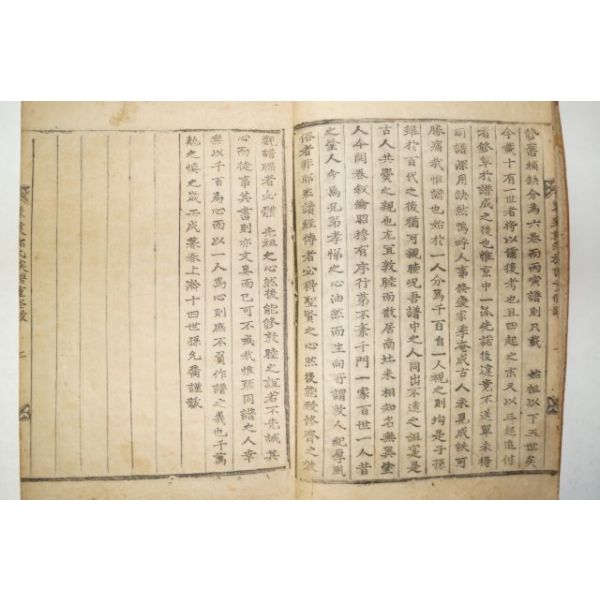 修舊補缺分爲六卷而丙寅譜則只載 始祖以下五世矣
今載十有一世者將以備後考也且四起之末又以三起追付
者修阜於譜成之後也惟京中一派先諾後違竟不送單未得
同譜深用訣然嗚呼人事喪變家季庵成古人未見成訣可
勝痛哉惟譜也始於一人分爲千百自一人視之則均是子孫
雖於百代之後猶可親睦况吾譜中之人同出不遠之祖寔是
古人共㸑之親也尤宜敦睦而散居南北未相知名無異塗
人今開卷叙倫昭穆有序行第不紊千門一家百世一人昔
之塗人今爲兄弟孝悌之心油然而生向所謂敦人紀厚風
俗者非耶然讀經傳者必得聖賢之心然後能致修齊之效
觀譜牒者必體 先祖之心然後能修敦睦之誼若不先誠其
心而徒事其書則亦文具而已可不戒哉惟願同譜之人幸
無以千百爲心而以一人爲心則庶不負作譜之義也千萬
勉之㥘之歲丙戌暮春上澣十四世孫允喬謹跋